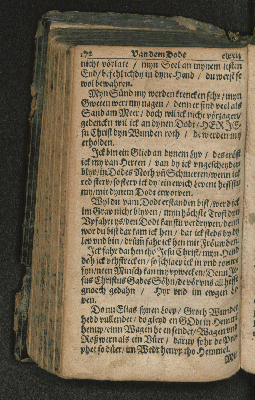 Van dem Dode
nicht vörlate / myn Seel an mynem lesten
End / befehl ick dy in dyne Hend / du werst se
wol bewahren.
Myn Sünd my werden krencken sehr / myn
Geweten wert my nagen / denn er sind veel als
Sand am Meer / doch wil ick nicht vörzagen /
gedencken wil ick an dynen Dodt / HERJE-
su Christ dyn Wunden roth / de werden my
erholden.
Ick bin ein Glied an dynem Lyv / des tröst
ick my van Herten / van dy ick ungescheden
blyv / in Dodes Noth un Schmerten / wenn ick
red sterv / so sterv ick dy / ein ewich Levent heffstu
my / mit dynem Dode erworven.
Wyl du vam Dode erstanden bist / werd ick
im Grav nicht blyven / myn höchste Trost dyn
Upfahrt ys / den Dodt kan stu verdryven / denn
wor du bist dar kam ick hen / dat ick stedes by dy
lev und bin / drüm fahr ick hen mit Fröuwden.
Ick fahr darhen tho Jesu Christ / myn Arm
doh ick uthstrecken / so schlaep ick in und rouwe
fyn / neen Minsch kan my upwecken / Denn Je-
sus Christus Gades Söhn / de vör uns all hefft
gnoech gedahn / Hyr und im ewigen Le-
ven.
Do nu Elias synen Loep / Groth Wunder
hedd vullendet / do gleyd en GOdt im Hemmel
henup / einn Wagen he en sendet / Wagen und